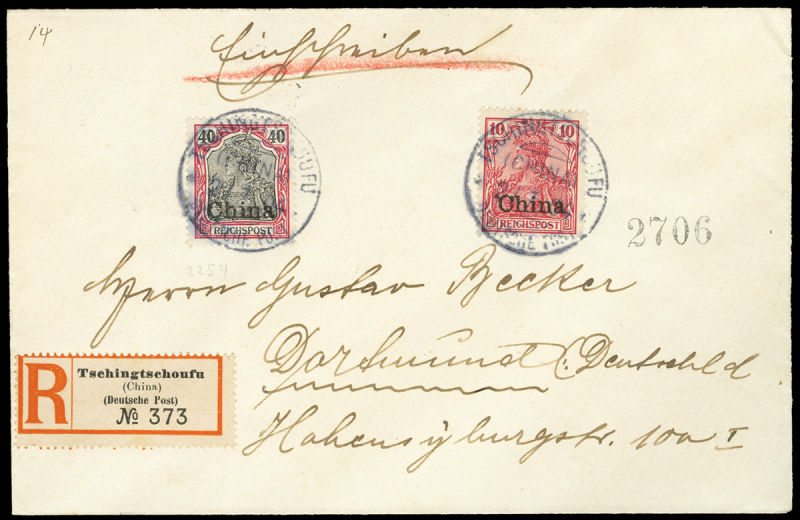 14
Einschreiben
40 40
China
REICHSPOST
10 10
China
REICHSPOST
(CHINA)
2706
2254
Herrn Gustav Becker
Dortmund (: Deutschld
Hohensyburgstr. 100 I
R
Tschingtschoufu
(China)
(Deutsche Post)
№ 373